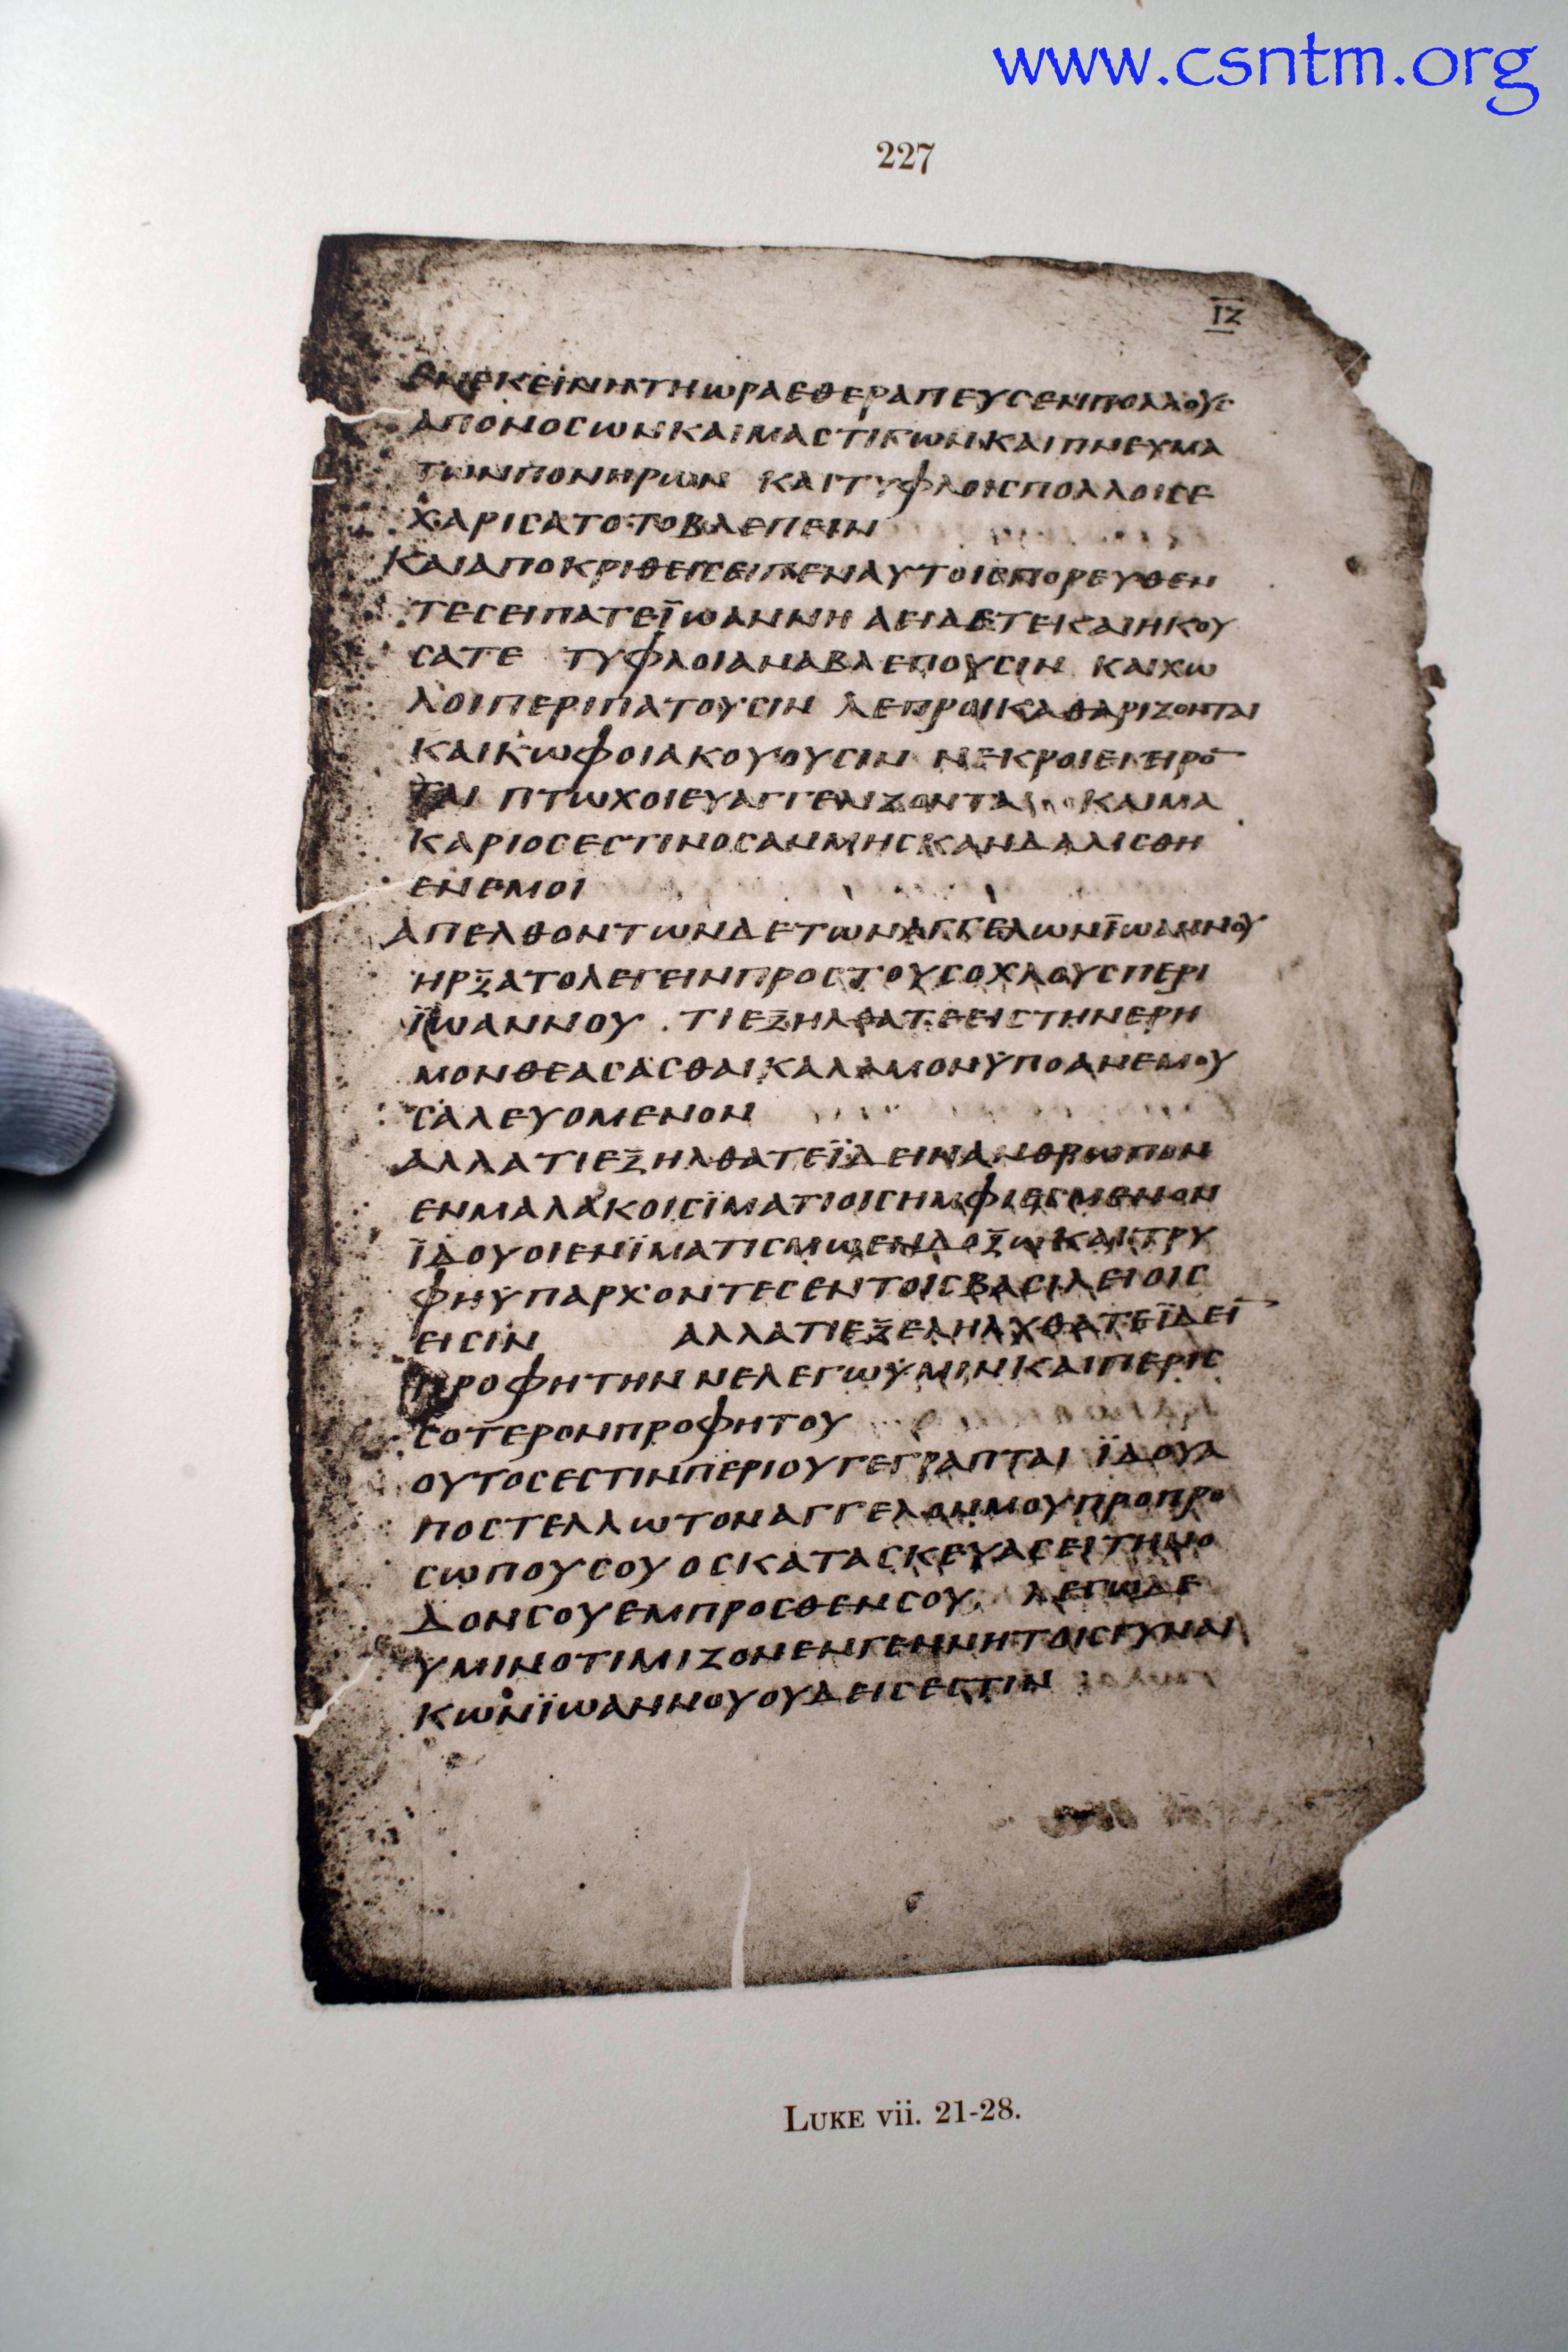 www.csntm.org
227
ΙΖ
ΕΝΕΚΕΙΝΗΤΗΩΡΑΕΘΕΡΑΠΕΥСΕΝΠΟΛΛΟΥС
ΑΠΟΝΟСΩΝΚΑΙΜΑСΤΙΓΩΝΚΑΙΠΝΕΥΜΑ
ΤΩΝΠΟΝΗΡΩΝ ΚΑΙΤΥΦΛΟΙСΠΟΛΛΟΙСΕ
ΧΑΡΙСΑΤΟΤΟΒΛΕΠΕΙΝ
ΚΑΙΑΠΟΚΡΙΘΕΙСΕΙΠΕΝΑΥΤΟΙСΠΟΡΕΥΘΕΝ
ΤΕСΕΙΠΑΤΕΪΩΑΝΝΗ ΑΕΙΔΕΤΕΚΑΙΗΚΟΥ
СΑΤΕ ΤΥΦΛΟΙΑΝΑΒΛΕΠΟΥСΙΝ ΚΑΙΧΩ
ΛΟΙΠΕΡΙΠΑΤΟΥСΙΝ ΛΕΠΡΟΙΚΑΘΑΡΙΖΟΝΤΑΙ
ΚΑΙΚΩΦΟΙΑΚΟΥΟΥСΙΝ ΝΕΚΡΟΙΕΓΕΙΡΟ̅
ΤΑΙ ΠΤΩΧΟΙΕΥΑΓΓΕΛΙΖΟΝΤΑΙ ΚΑΙΜΑ
ΚΑΡΙΟСΕСΤΙΝΟСΑΝΜΗСΚΑΝΔΑΛΙСΘΗ
ΕΝΕΜΟΙ
ΑΠΕΛΘΟΝΤΩΝΔΕΤΩΝΑΓΓΕΛΩΝΪΩΑΝΝΟΥ
ΗΡΞΑΤΟΛΕΓΕΙΝΠΡΟСΤΟΥСΟΧΛΟΥСΠΕΡΙ
ΪΩΑΝΝΟΥ . ΤΙΕΞΗΛΘΑΤΕΕΙСΤΗΝΕΡΗ
ΜΟΝΘΕΑСΑСΘΑΙΚΑΛΑΜΟΝΥΠΟΑΝΕΜΟΥ
СΑΛΕΥΟΜΕΝΟΝ
ΑΛΛΑΤΙΕΞΗΛΘΑΤΕΪΔΕΙΝΑΝΘΡΩΠΟΝ
ΕΝΜΑΛΑΚΟΙСΪΜΑΤΙΟΙСΗΜΦΙΕСΜΕΝΟΝ
ΪΔΟΥΟΙΕΝΪΜΑΤΙСΜΩΕΝΔΟΞΩΚΑΙΤΡΥ
ΦΗΥΠΑΡΧΟΝΤΕСΕΝΤΟΙСΒΑСΙΛΕΙΟΙС
ΕΙСΙΝ ΑΛΛΑΤΙΕΞΕΛΗΛΥΘΑΤΕΪΔΕΙ̅
ΠΡΟΦΗΤΗΝΝΕΛΕΓΩΥΜΙΝΚΑΙΠΕΡΙС
СΟΤΕΡΟΝΠΡΟΦΗΤΟΥ
ΟΥΤΟСΕСΤΙΝΠΕΡΙΟΥΓΕΓΡΑΠΤΑΙ ΪΔΟΥΑ
ΠΟСΤΕΛΛΩΤΟΝΑΓΓΕΛΟΝΜΟΥΠΡΟΠΡΟ
СΩΠΟΥСΟΥΟСΚΑΤΑСΚΕΥΑСΕΙΤΗΝΟ
ΔΟΝСΟΥΕΜΠΡΟСΘΕΝСΟΥ ΛΕΓΩΔΕ
ΥΜΙΝΟΤΙΜΙΖΟΝΕΝΓΕΝΝΗΤΟΙСΓΥΝΑΙ
ΚΩΝΪΩΑΝΝΟΥΟΥΔΕΙСΕСΤΙΝ
LUKE vii. 21-28.